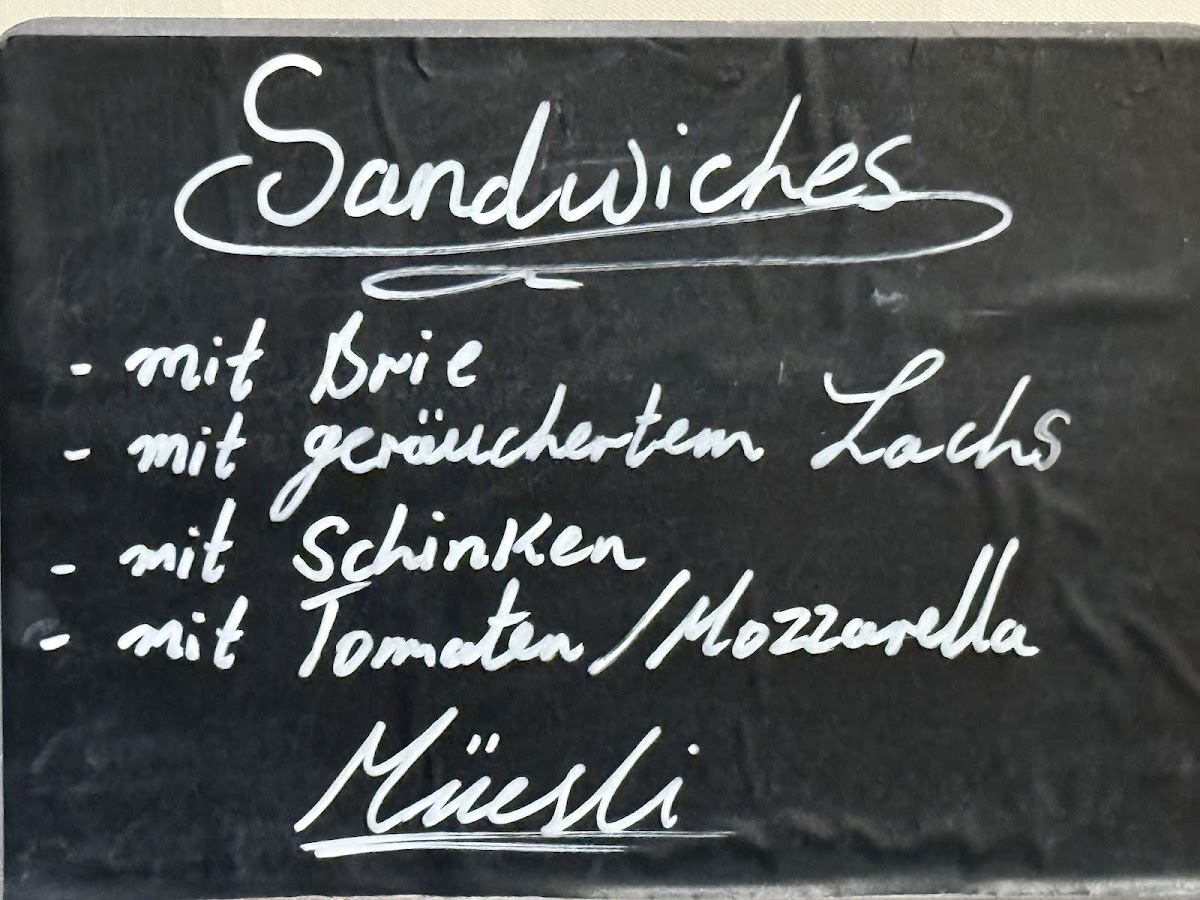 Sandwiches
- mit Brie
- mit geräuchertem Lachs
- mit Schinken
- mit Tomaten/Mozzarella
Müesli